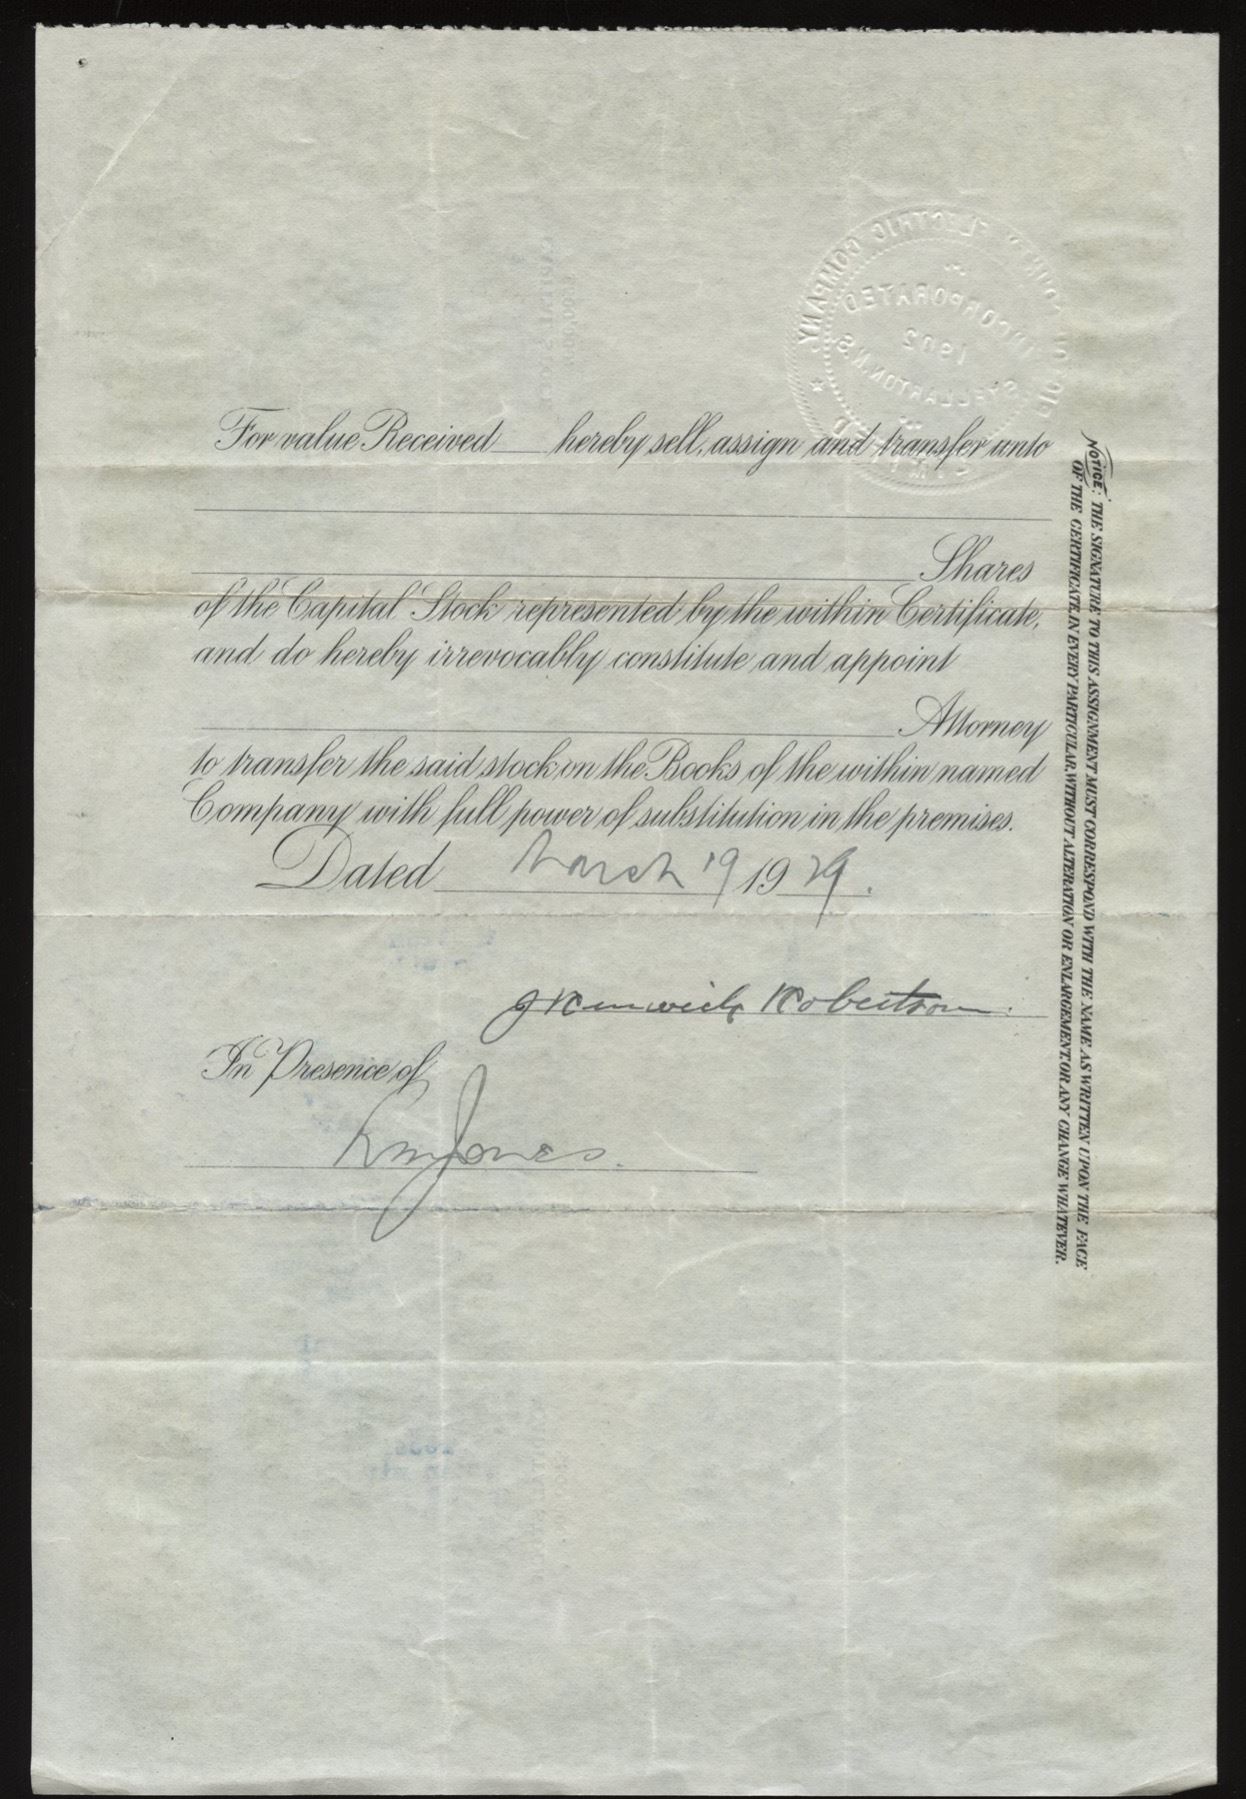 ELECTRIC COMPANY
INCORPORATED
1902
STELLARTON, N.S.
For value Received ___ hereby sell, assign and transfer unto
Shares
of the Capital Stock represented by the within Certificate,
and do hereby irrevocably constitute and appoint
Attorney
to transfer the said stock on the Books of the within named
Company with full power of substitution in the premises.
Dated March 19 1929.
J Renwick Robertson.
In Presence of
Jones.
NOTICE: THE SIGNATURE TO THIS ASSIGNMENT MUST CORRESPOND WITH THE NAME AS WRITTEN UPON THE FACE
OF THE CERTIFICATE, IN EVERY PARTICULAR, WITHOUT ALTERATION OR ENLARGEMENT, OR ANY CHANGE WHATEVER.